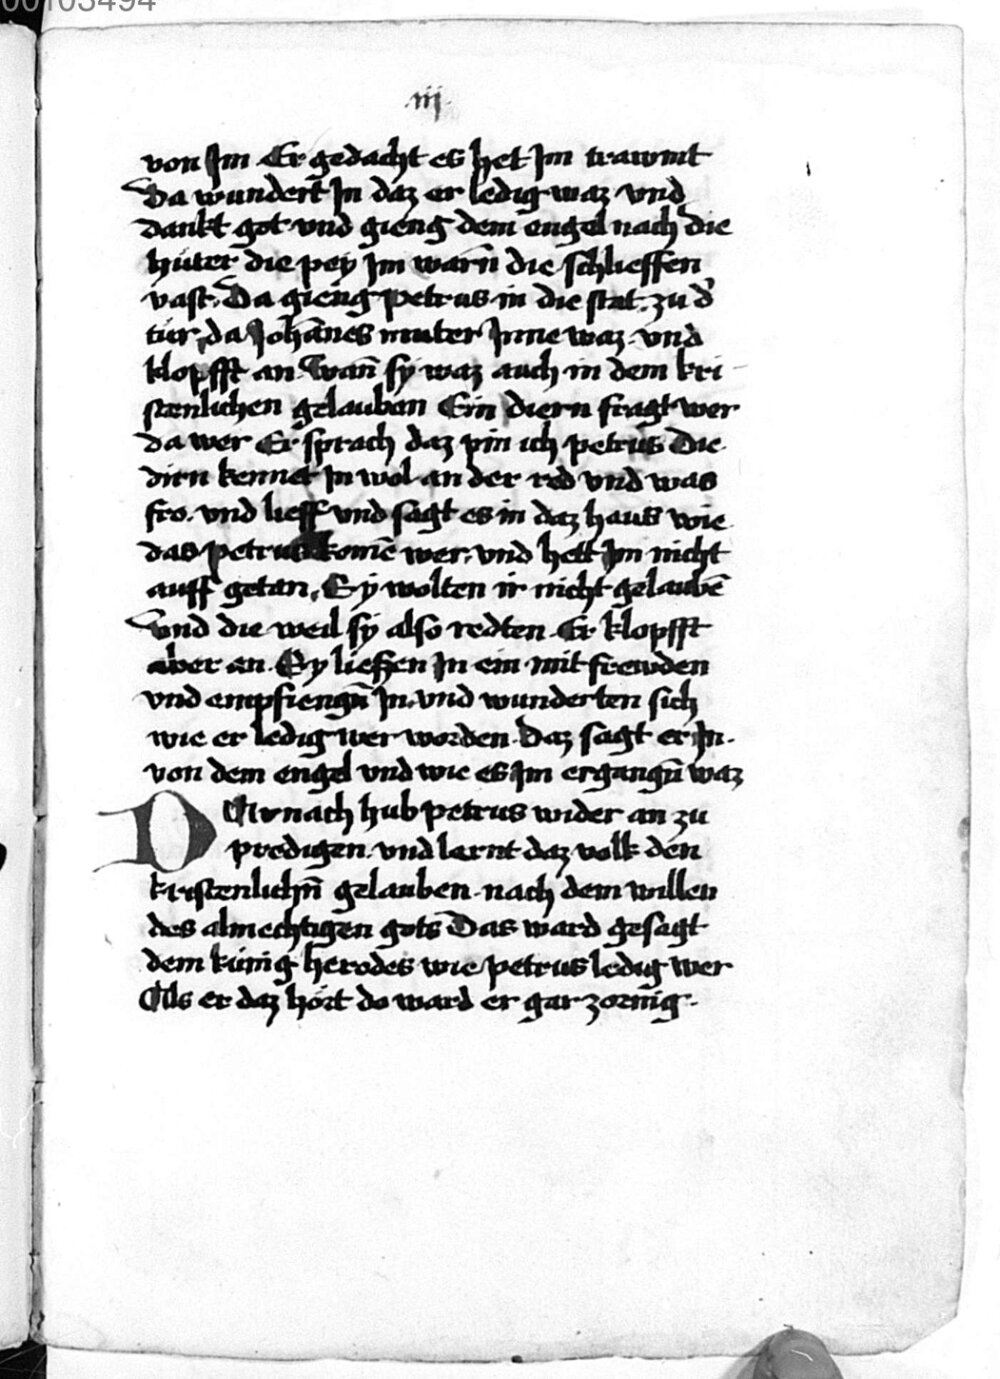 00103494
.iij.
von Jm Er gedacht es het Jm trawmt
Da wundert̄ Jn daz er ledig waz vnd
dankt got vnd gieng dem engel nach die
hüter die pey Jm warn̄ die schlieffen
vast. Da gieng petrus in die stat. zu d̕
tür, da Johānes muter Jnne waz. vnd
klopfft an. wan̄ sy waz auch in dem kri
stenlichen gelauban Ein diern fragt wer
da wer Er sprach daz pin ich petrus Die
dirn kennet Jn wol an der red vnd was
fro. vnd lieff vnd sagt es in daz haus wie
das petrus komē wer. vnd hett Jm nicht
auff getan. Sy wolten ir nicht gelaubē
Vnd die weil sy also redten Er klopfft
aber an. Sy liessen Jn ein mit frewden
vnd empfiengn̄ Jn. vnd wunderten sich
wie er ledig wer worden. Daz sagt er Jn.
von dem engel vnd wie es Jm ergangn̄ waz
DArnach hub petrus wider an zu
predigen. vnd lernt daz volk den
kristenlichn̄ gelauben. nach dem willen
des almechtigen gots Das ward gesagt
dem künig herodes wie petrus ledig wer
Als er daz hört do ward er gar zornig.